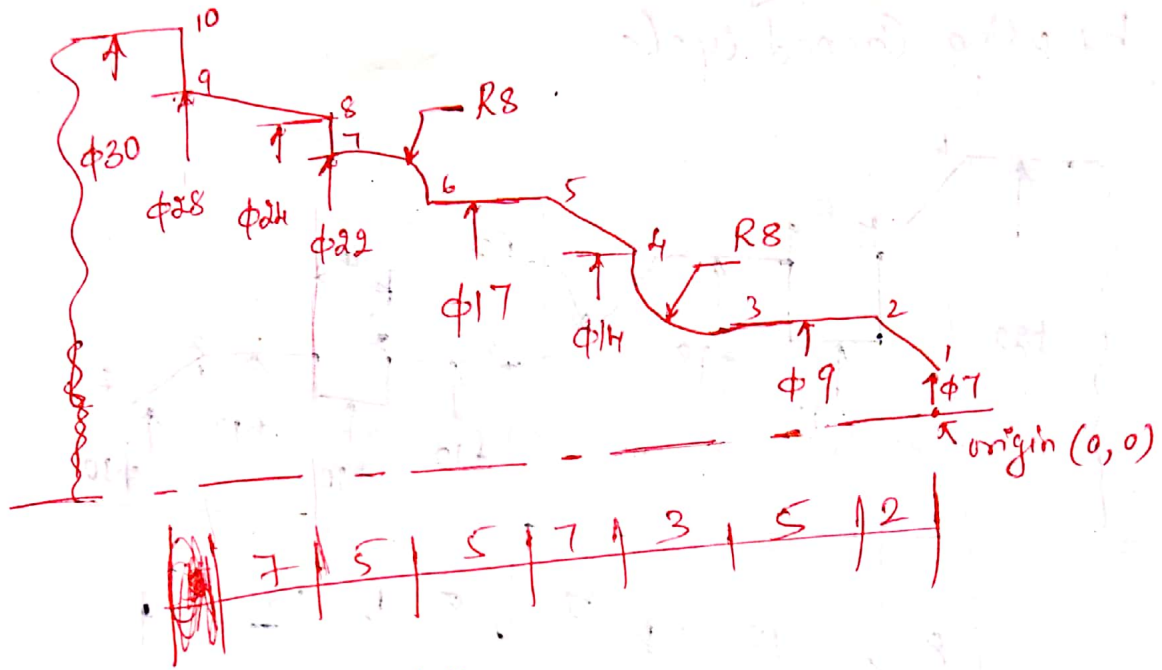 10
9
8
R8
7
ϕ30
6
5
ϕ28
ϕ24
ϕ22
4
R8
ϕ17
3
2
ϕ14
1
ϕ9
ϕ7
origin (0,0)
7 5 5 7 3 5 2